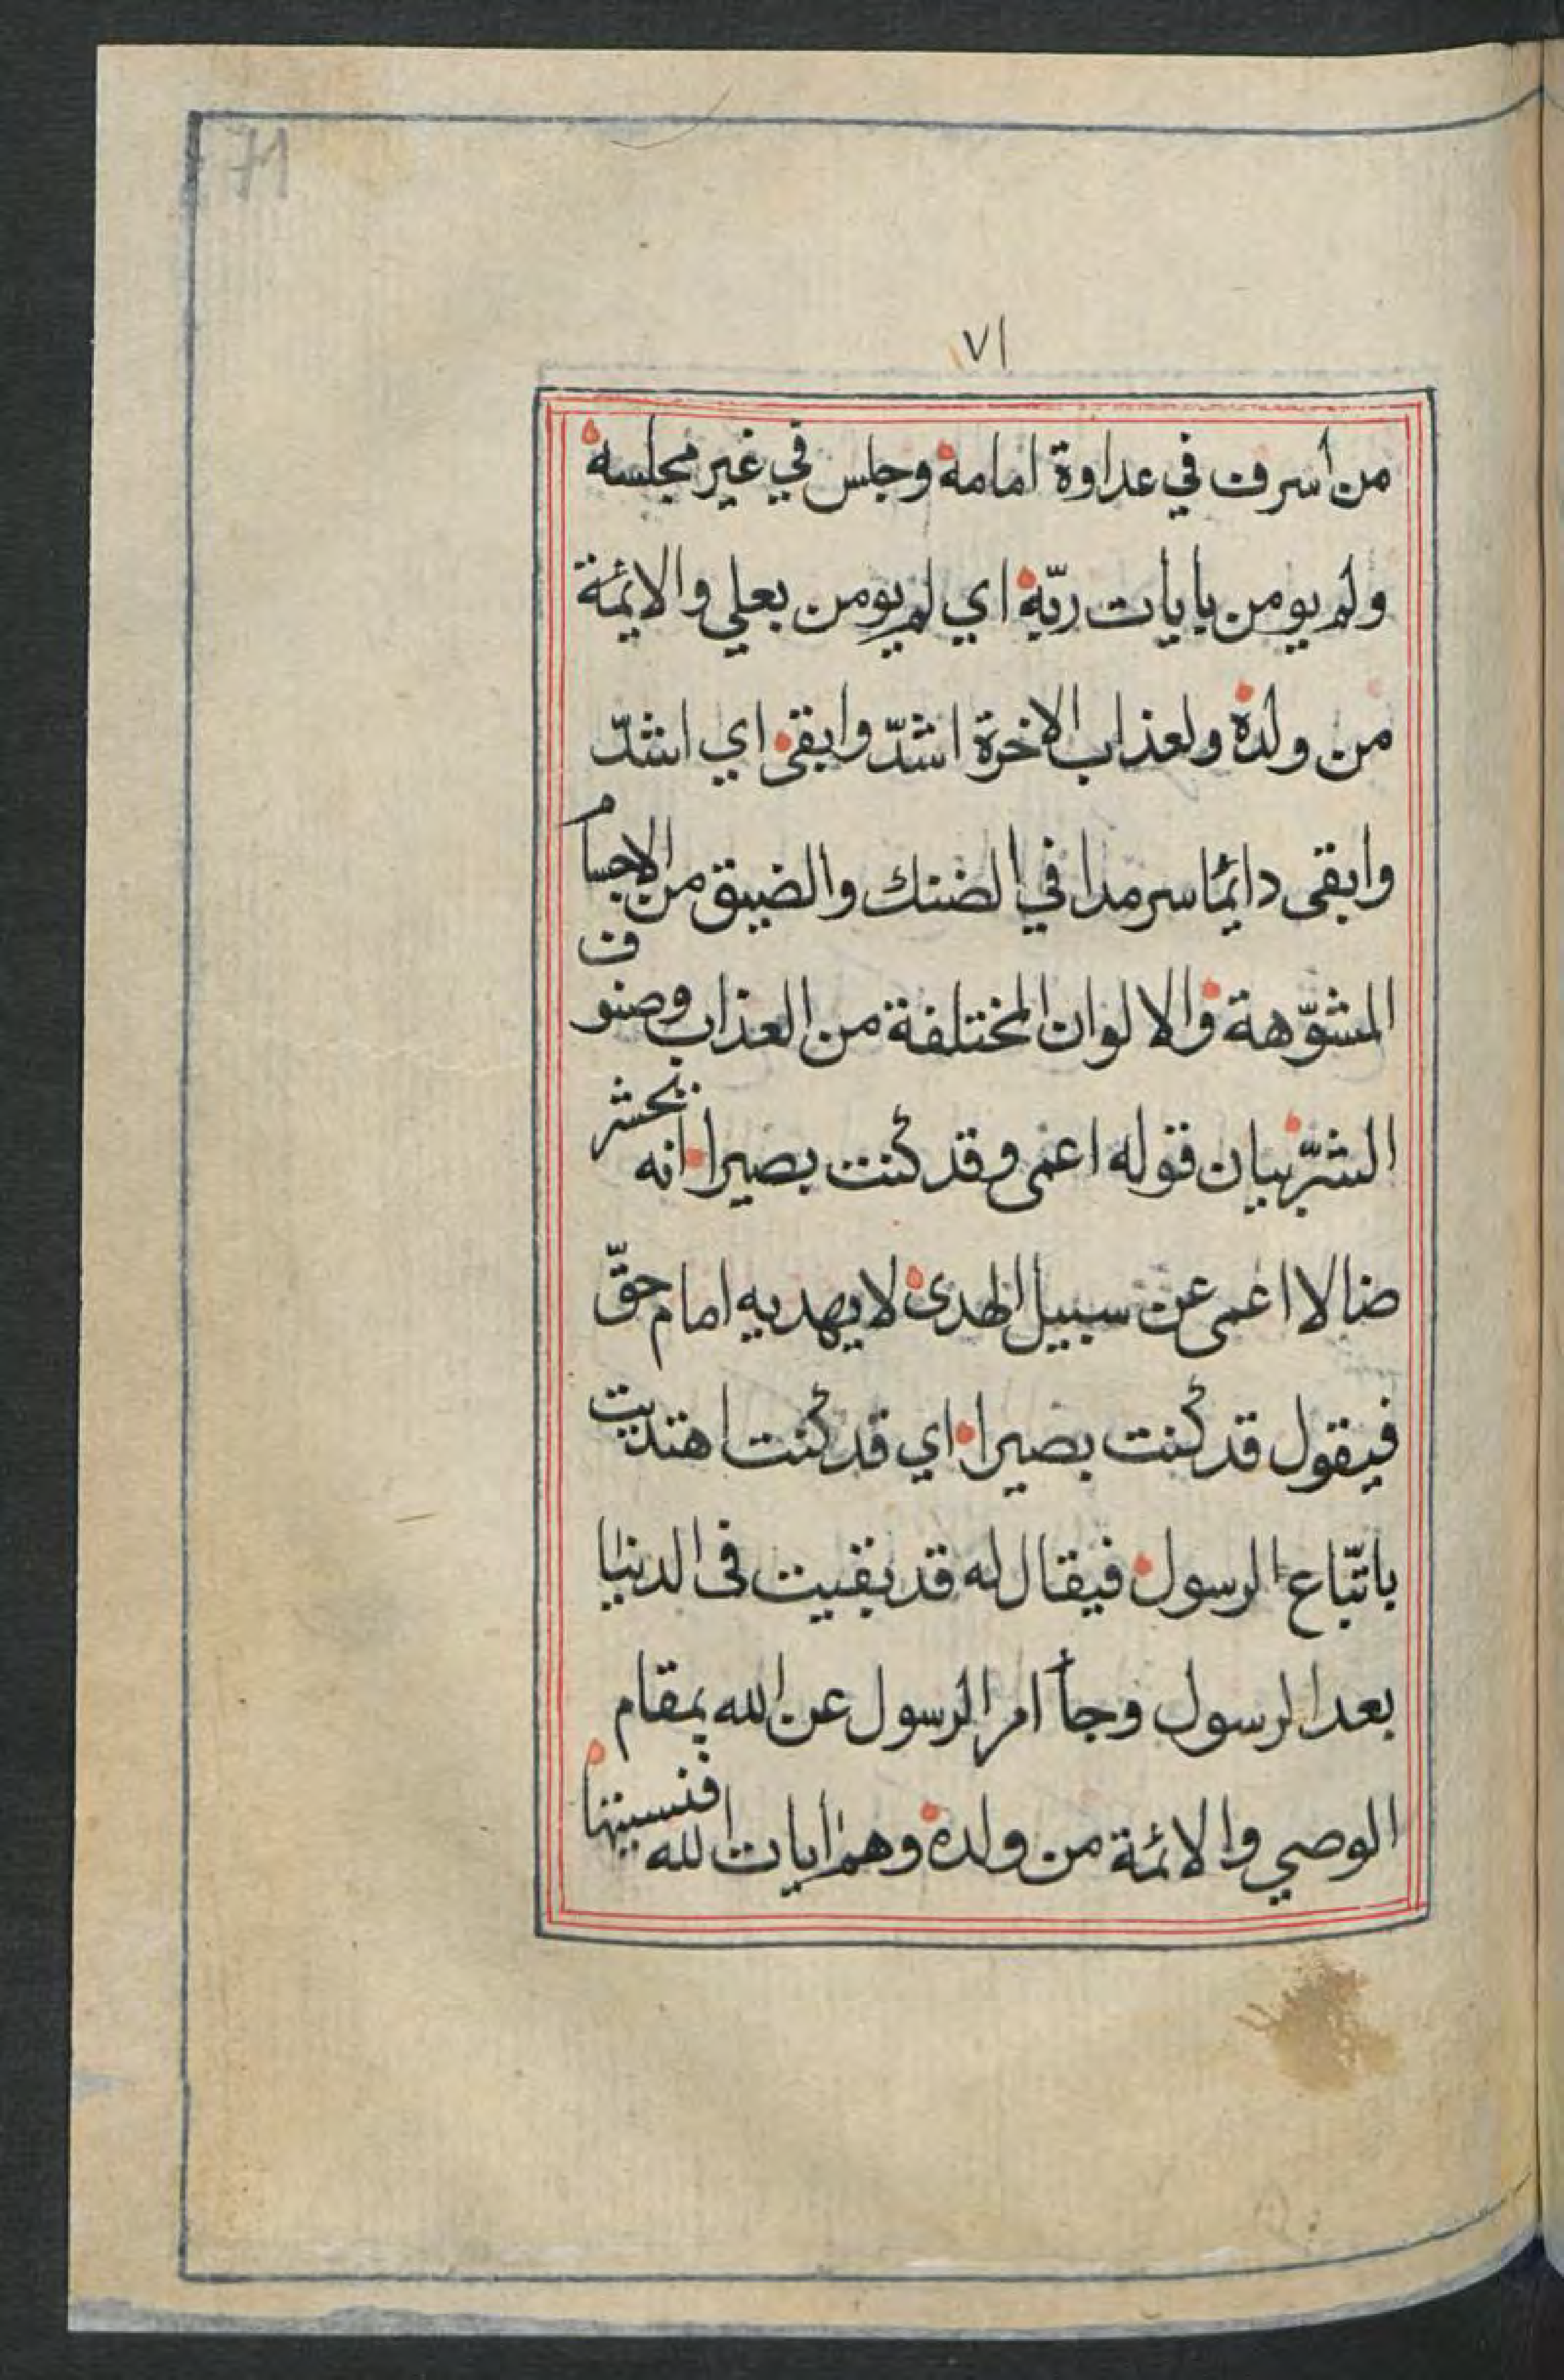 71
٧١
من أسرف في عداوة امامه وجلس في غير مجلسه
ولم يومن بايات ربّه اي لم يومن بعلي والايمّة
من ولده ولعذاب الاخرة اشدّ وابقى اي اشدّ
وابقى دايمًا سرمدا في الضنك والضيق من الاجسام
المشوّهة والالوان المختلفة من العذاب وصنوف
الشرّ بيان قوله اعمى وقد كنت بصيرا انه يحشر
ضالا اعمى عن سبيل الهدى لا يهديه امام حقّ
فيقول قد كنت بصيرا اي قد كنت اهتديت
باتّباع الرسول فيقال له قد بقيت في الدنيا
بعد الرسول وجأ امر الرسول عن الله بمقام
الوصي والائمّة من ولده وهم ايات الله فنسيتها